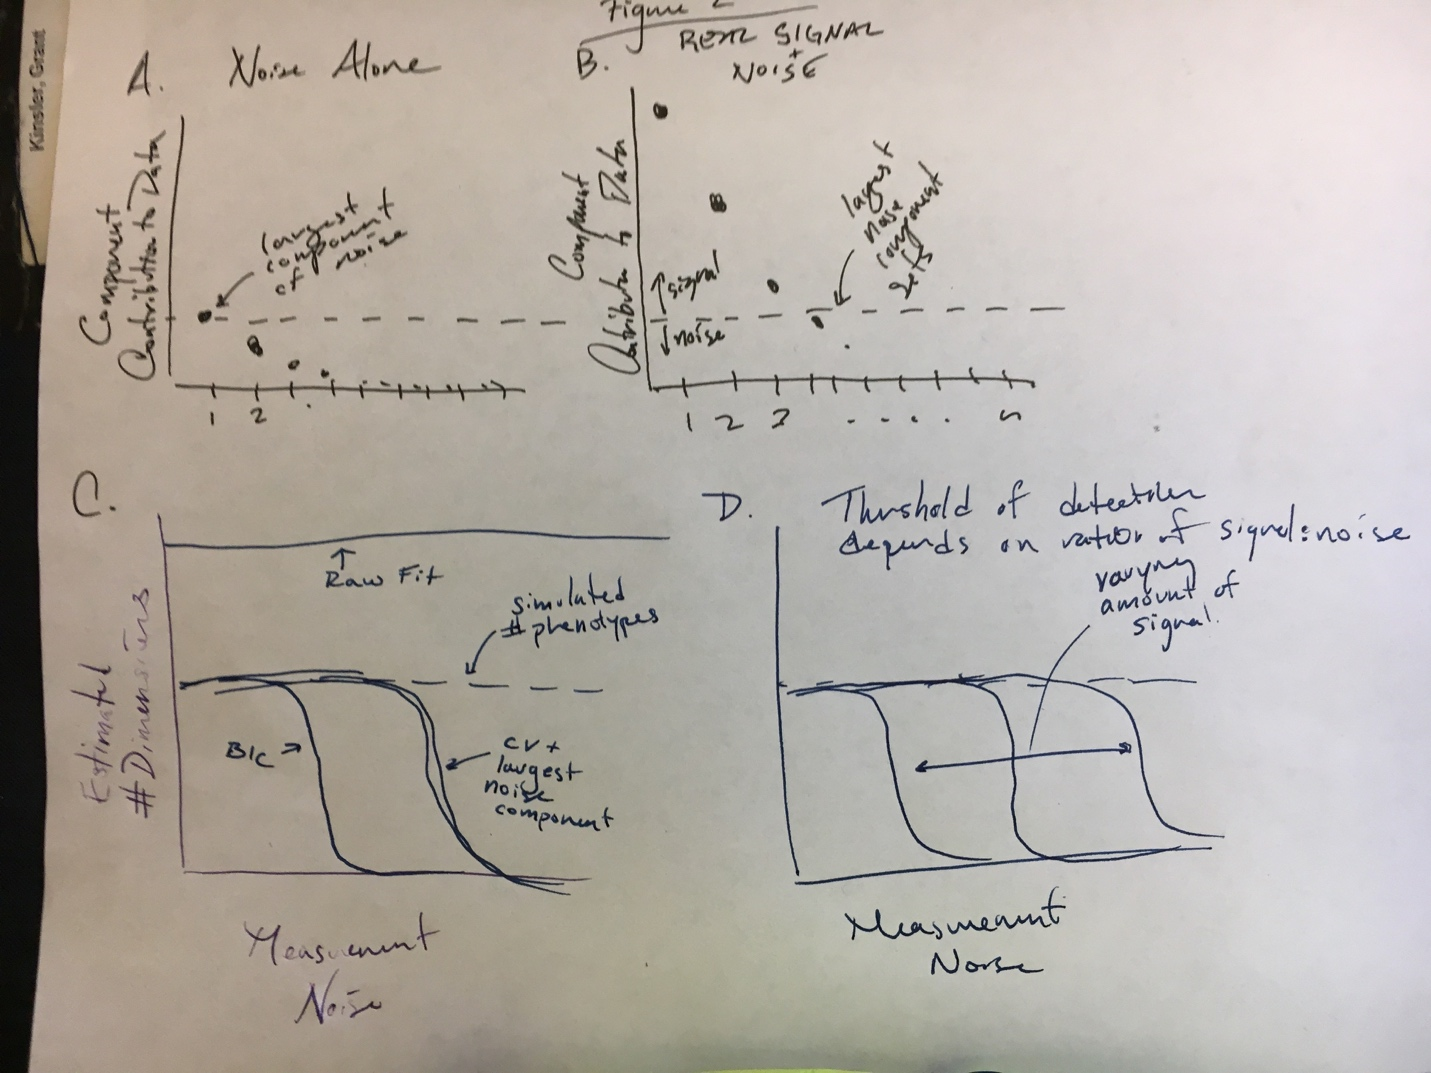 Kinsler, Grant
Figure 2
A. Noise Alone
B. REAL SIGNAL
+
NOISE
Component
Contribution to Data
largest
component
of noise
1 2 .
Component
Contribution to Data
↑ signal
↓ noise
largest
noise
component
sets
1 2 3 . . . . n
C.
Estimated
# Dimensions
↑
Raw Fit
simulated
# phenotypes
BIC →
CV +
largest
noise
component
Measurement
Noise
D. Threshold of detection
depends on ratio of signal:noise
varying
amount of
signal.
Measurement
Noise